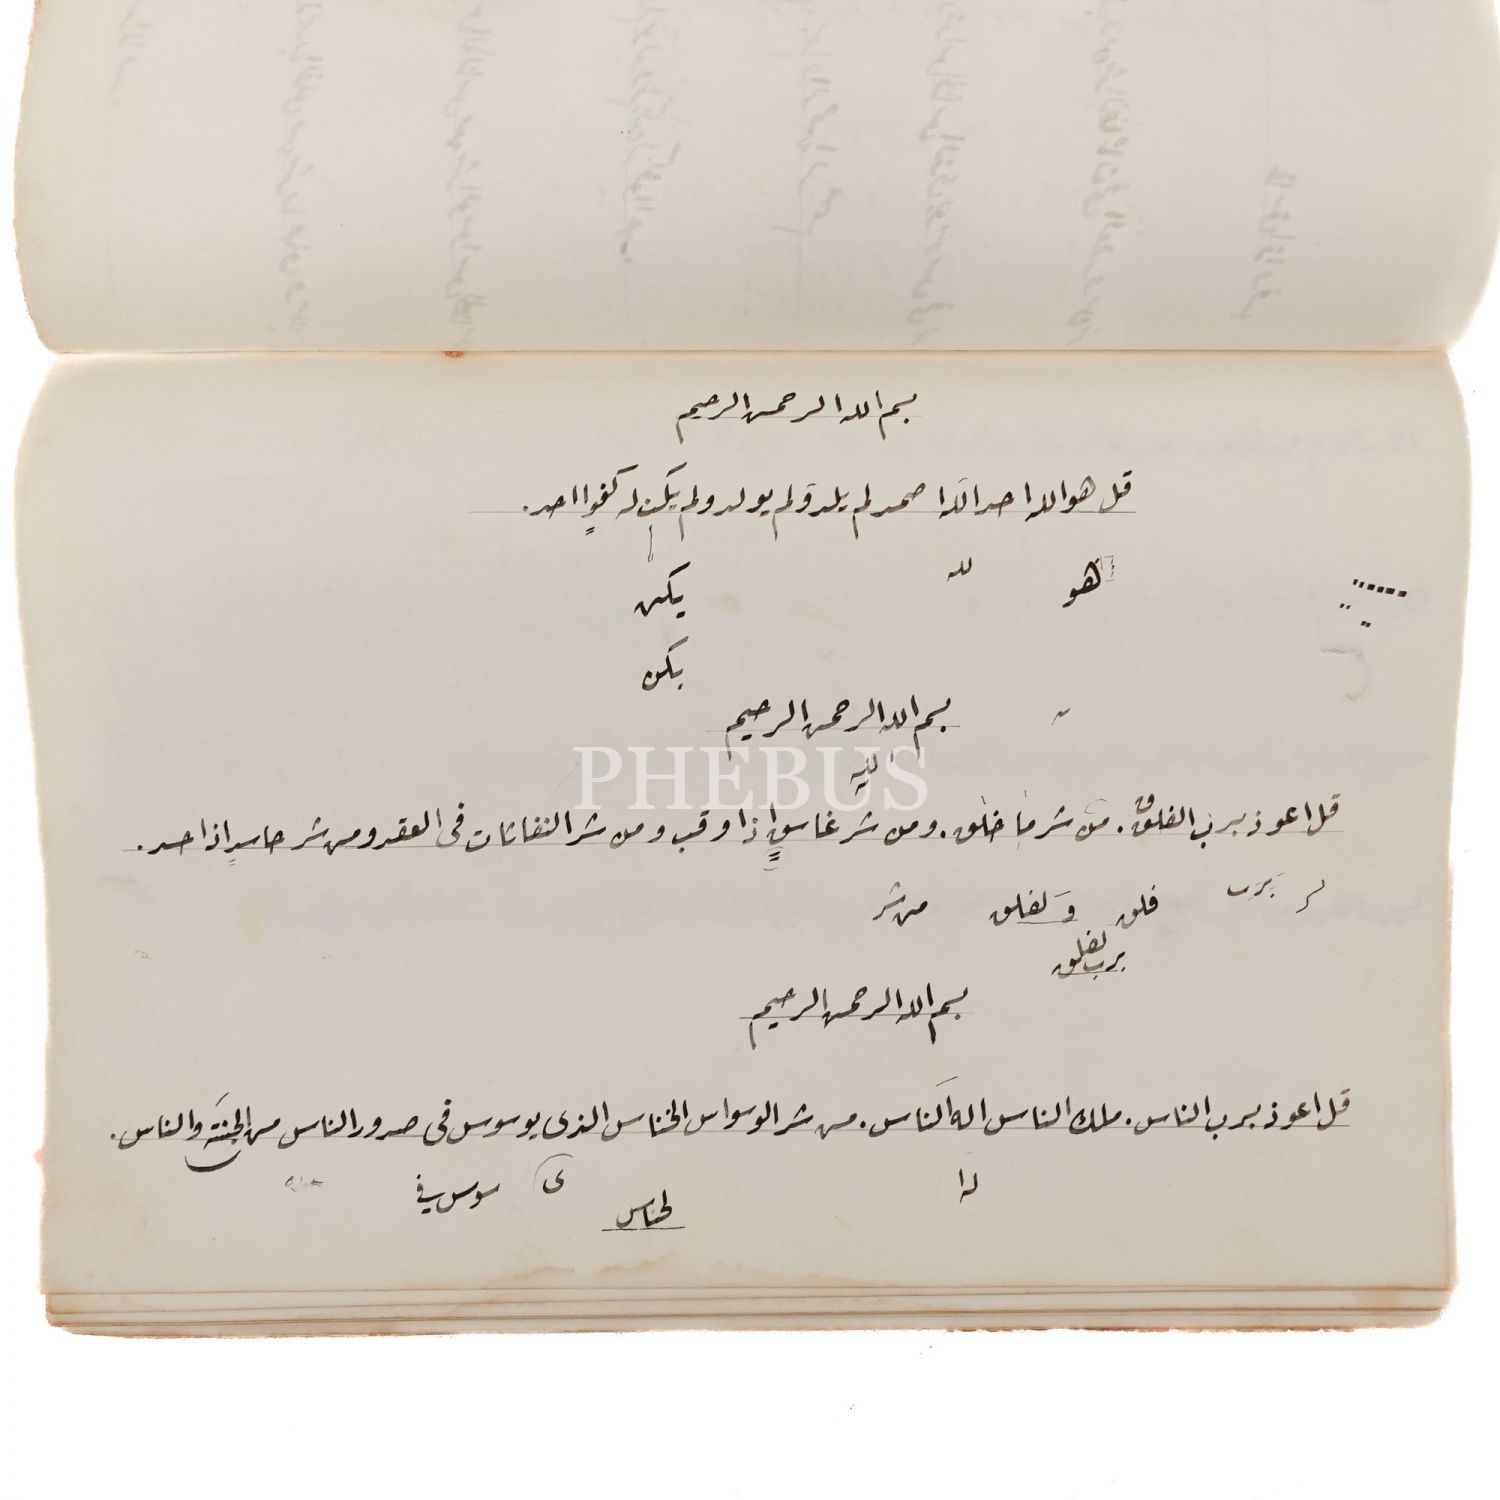 بسم الله الرحمن الرحيم
قل هو الله احد الله صمد لم يلد و لم يولد و لم يكن له كفوا احد.
هو لله يكن
يكن
بسم الله الرحمن الرحيم
PHEBUS
لله
قل اعوذ برب الفلق. من شر ما خلق. ومن شر غاسق اذا وقب ومن شر النفاثات فى العقد ومن شر حاسد اذا حسد.
برب فلق و لفلق من شر
برب لفلق
بسم الله الرحمن الرحيم
قل اعوذ برب الناس. ملك الناس اله الناس. من شر الوسواس الخناس الذى يوسوس فى صدور الناس من الجنته والناس.
لها ى سوس فى
لخناس